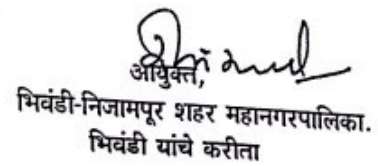 आयुक्त,
भिवंडी-निजामपूर शहर महानगरपालिका.
भिवंडी यांचे करीता